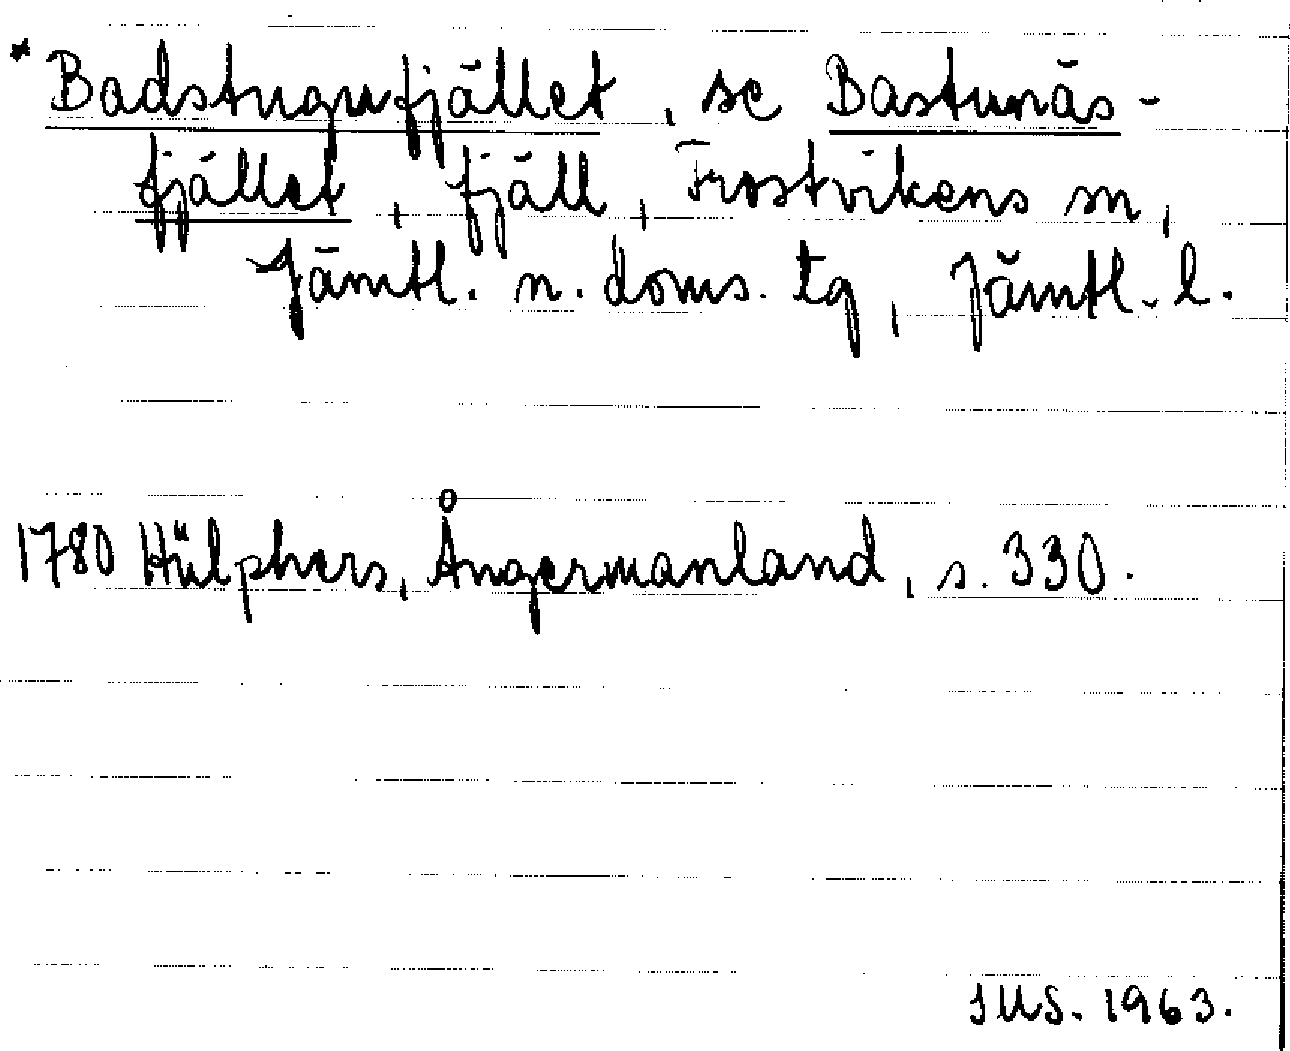 * Badstugufjället, se Bastunäs-
fjället, fjäll, Frostvikens sn,
Jämtl. n. doms. tg, Jämtl. l.
1780 Hülphers, Ångermanland, s. 330.
JUS. 1963.